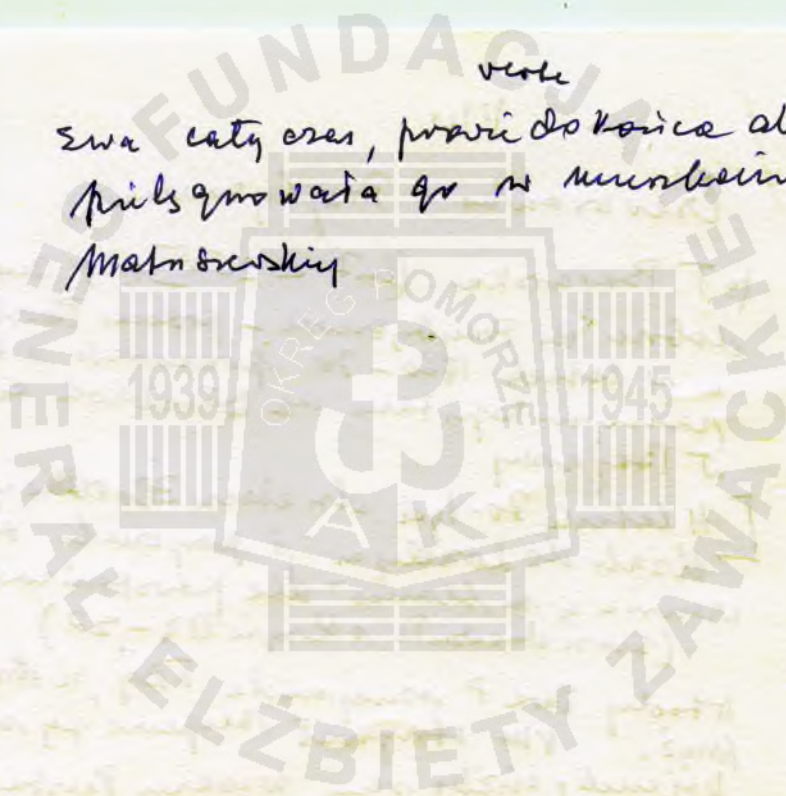 verte
Ewa cały czas, prawie do końca
pielęgnowała go w
Matuszewskiej
FUNDACJA
GENERAŁ ELŻBIETY ZAWACKIEJ
OKRĘG POMORZE
1939
1945
AK